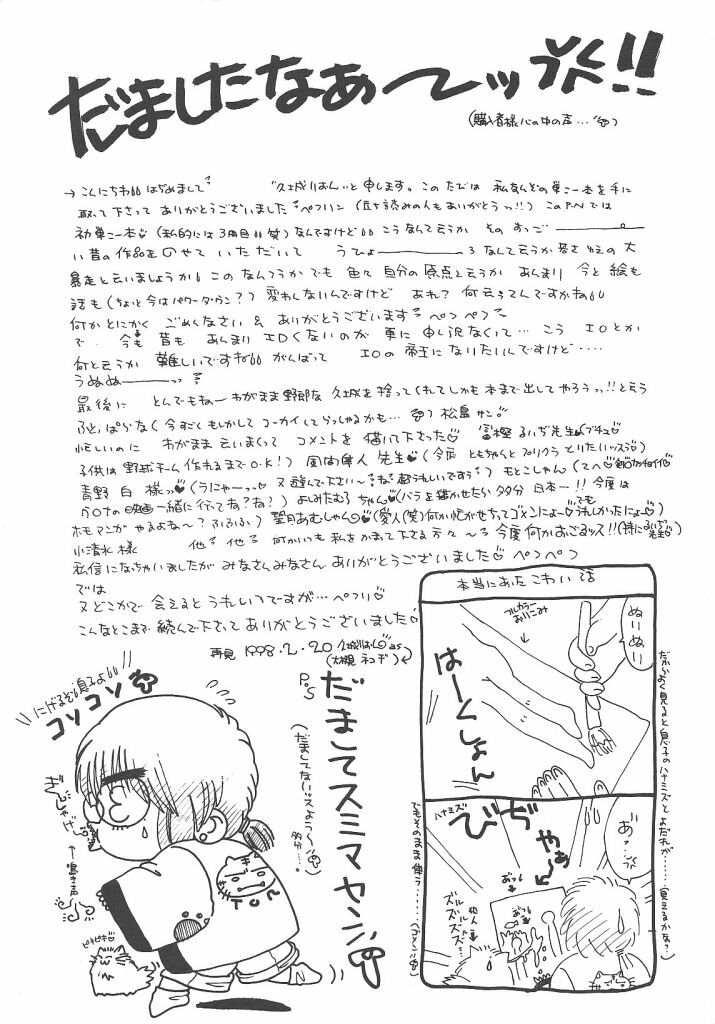 だましたなぁ〜ッ!!
(購入者様心の中の声…)
→こんにちわ はぢめまして 久城りおんと申します。このたびは 私なんぞの単こー本を手に
取って下さって ありがとうございました ペコリン (立ち読みの人もありがとうっ!!) このP.Nでは
初単こー本 (私的には3冊目 笑) なんですけど こうなんて云うか そのすっご
い昔の作品をのせていただいて うひょ なんて云うか 若さゆえの大
暴走と云いましょうか このなんつうか でも 色々自分の原点と云うか あんまり 今と絵も
話も (ちょっと今はパワーダウン??) 変わんないんですけど あれ? 何云ってんですかね
何かとにかく ごめんなさい & ありがとうございます ペコペコ
で 今も昔も あんまり エロくないのが 更に申し訳なくって… こう エロとか
何と云うか 難しいですね がんばって エロの帝王になりたいんですけど……
うぬぬーーッ
最後に とんでもねーわがまま野郎な 久城を拾ってくれてしかも 本まで出してやろうっ!!と云う
ふとっぱらな 今すごくもしかして コーカイしてらっしゃるかも… 松島サン。
忙しいのに わがまま云いまくって コメントを描いて下さった 富樫るいぢ先生
子供は野球チーム作れるまでO.K!) 風間隼人先生 (今度 ともちゃんと プリクラ とりたいッスう)
青野白様 (うにゃーっ 又遊んで下さい〜 ね) もとこしゃん
映画一緒に行ってね?ね?) よしみたむろちゃん (バラを描かせたら多分日本一!! 今度は
ホモマンガやるよね〜?ふふふ) 望月あむしゃん (愛人(笑) 何か忙がせちってゴメンにょー でも うれしかったにょー)
小清水様 他 他 何かいつも私をかまって下さる方々〜 今度何かおごるッス!!
私信になっちゃいましたが みなさんみなさん ありがとうございました ペコペコ
では
又どこかで 会えるとうれしいですが… ペコリ
こんなとこまで読んで下さって ありがとうございました
再見 1998.2.20 久城りおん
(大槻ネコヂ)
P.S
だましてスミマセン
(だましてないッスよう〜 多分…。)
にげるぞ息子よ!!
コソコソ
←鳴き声
ピキピキ
本当にあった こわい話
フルカラー
おりこみ
ぬいぬい
はーくしょん
だからよく見ると息子のハナミズとよだれが……(見えるかな?)
ハナミズ
びぢゃあ
あ?
犯人
ズルズルズルズル…
でもそのまま使う……(ゴメン)